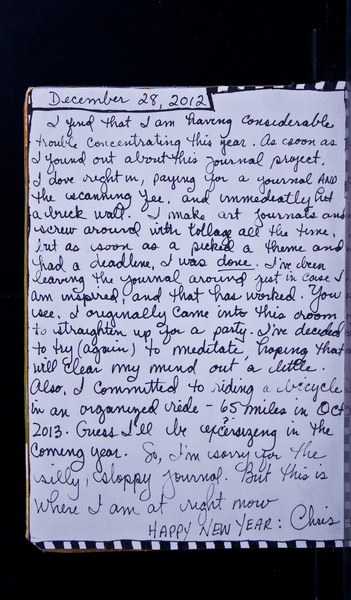 December 28, 2012
I find that I am having considerable
trouble concentrating this year. As soon as
I found out about this journal project,
I dove right in, paying for a journal AND
the scanning fee, and immediatly hit
a brick wall. I make art journals and
screw around with collage all the time,
but as soon as a picked a theme and
had a deadline, I was done. I've been
leaving the journal around just in case I
am inspired, and that has worked. You
see, I originally came into this room
to straighten up for a party. I've decided
to try (again) to meditate, hoping that
will clear my mind out a little.
Also, I committed to riding a bicycle
in an organized ride - 65 miles in Oct
2013. Guess I'll be excersizing in the
coming year. So, I'm sorry for the
silly, sloppy journal. But this is
where I am at right now
HAPPY NEW YEAR: Chris